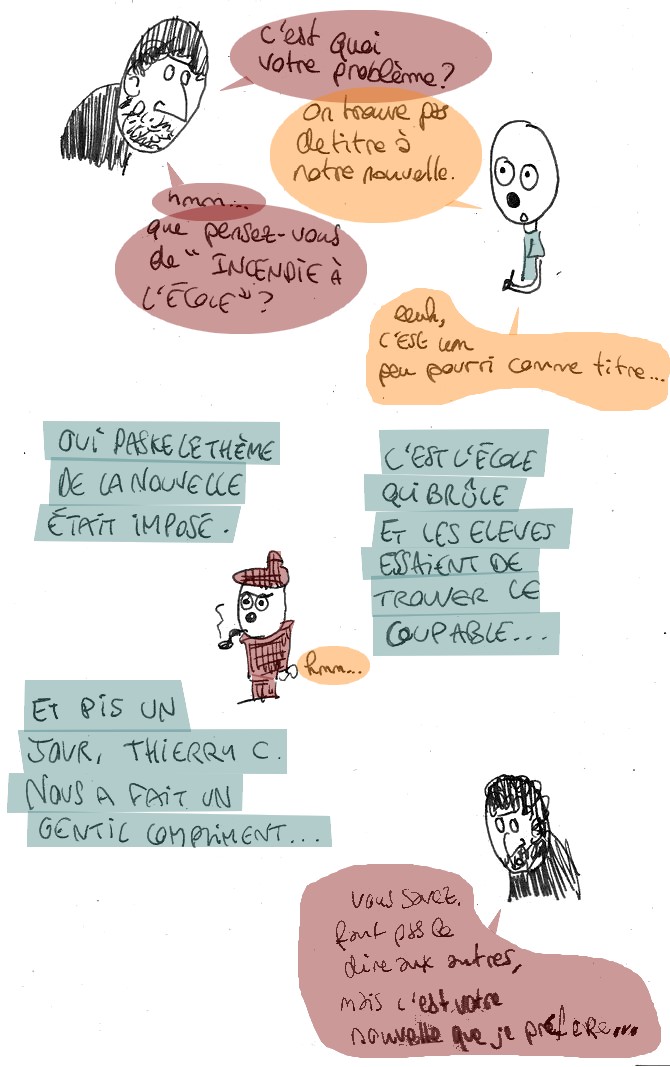 c'est quoi
votre problème?
on trouve pas
de titre à
notre nouvelle.
hmm...
que pensez-vous
de "INCENDIE À
L'ÉCOLE"?
euh,
C'EST un
peu pourri comme titre...
OUI PASKE LE THÈME
DE LA NOUVELLE
ÉTAIT IMPOSÉ.
C'EST L'ÉCOLE
QUI BRÛLE
ET LES ELEVES
ESSAIENT DE
TROUVER LE
COUPABLE...
hmm...
ET PIS UN
JOUR, THIERRY C.
NOUS A FAIT UN
GENTIL COMPLIMENT...
vous savez,
faut pas le
dire aux autres,
mais c'est votre
nouvelle que je préfère...